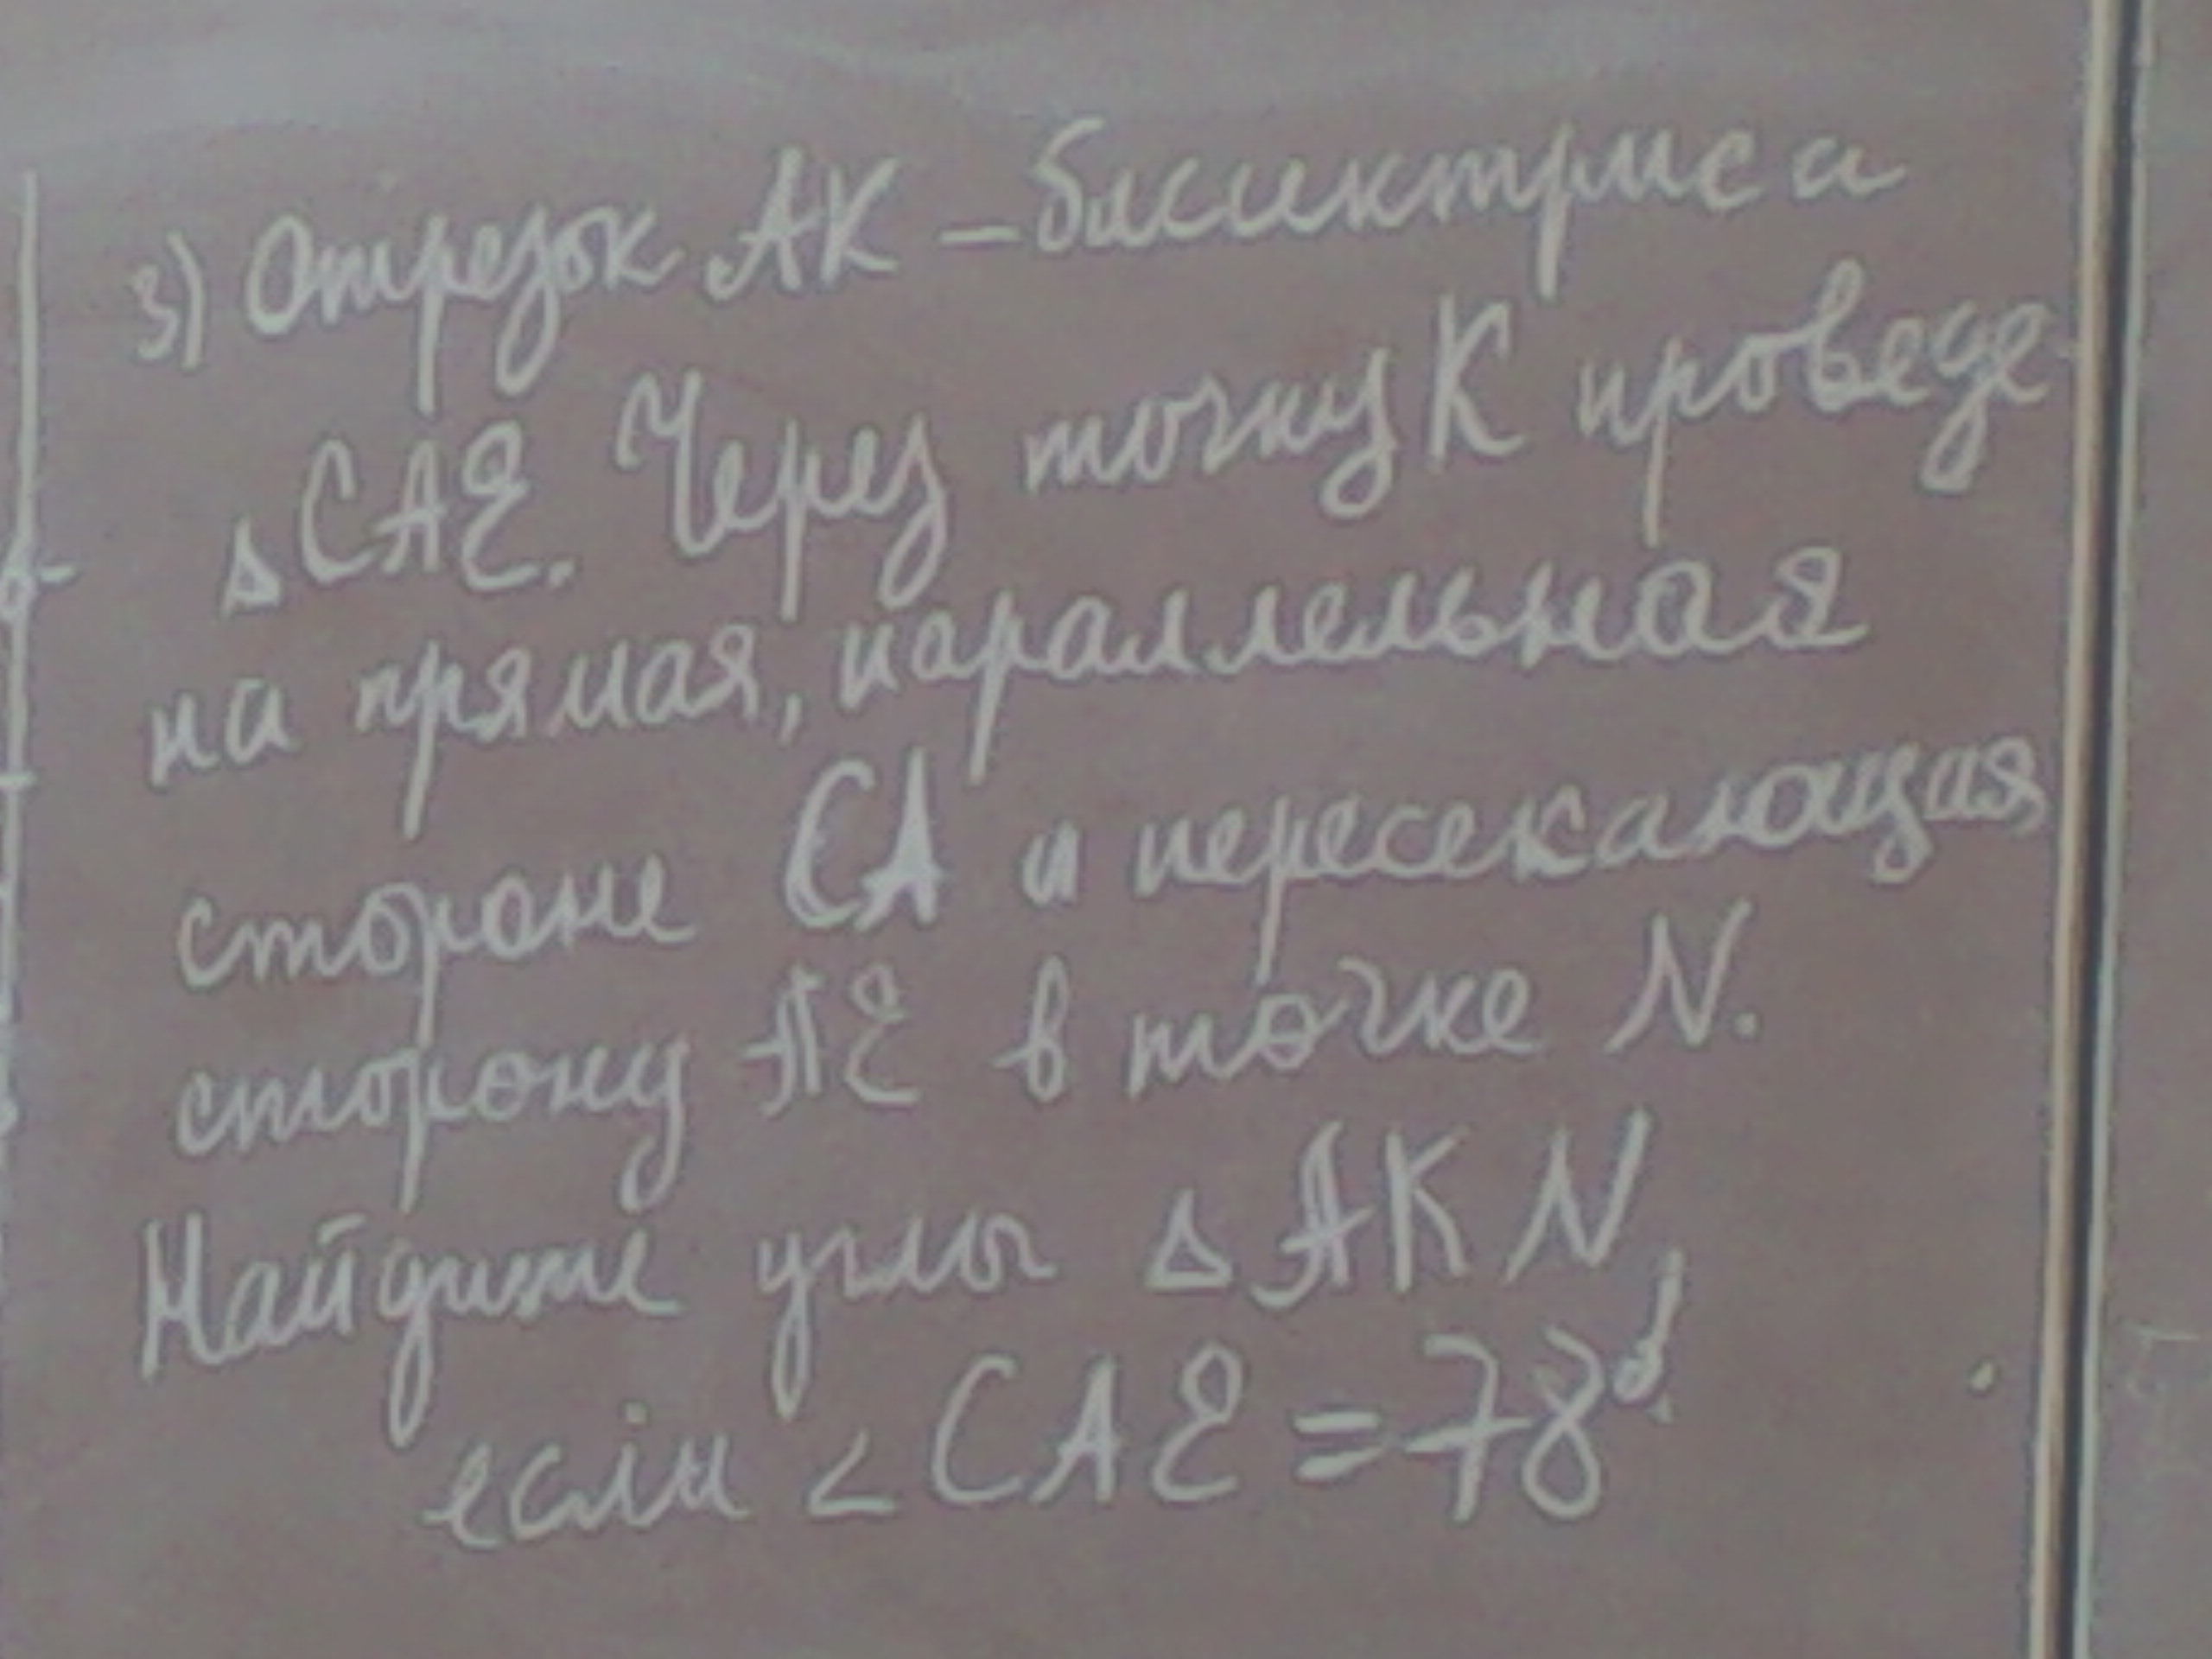 3) Отрезок АК – биссектриса
△ САЕ. Через точку К проведе-
на прямая, параллельная
стороне СА и пересекающая
сторону АЕ в точке N.
Найдите углы △ АКN,
если ∠ САЕ = 78°